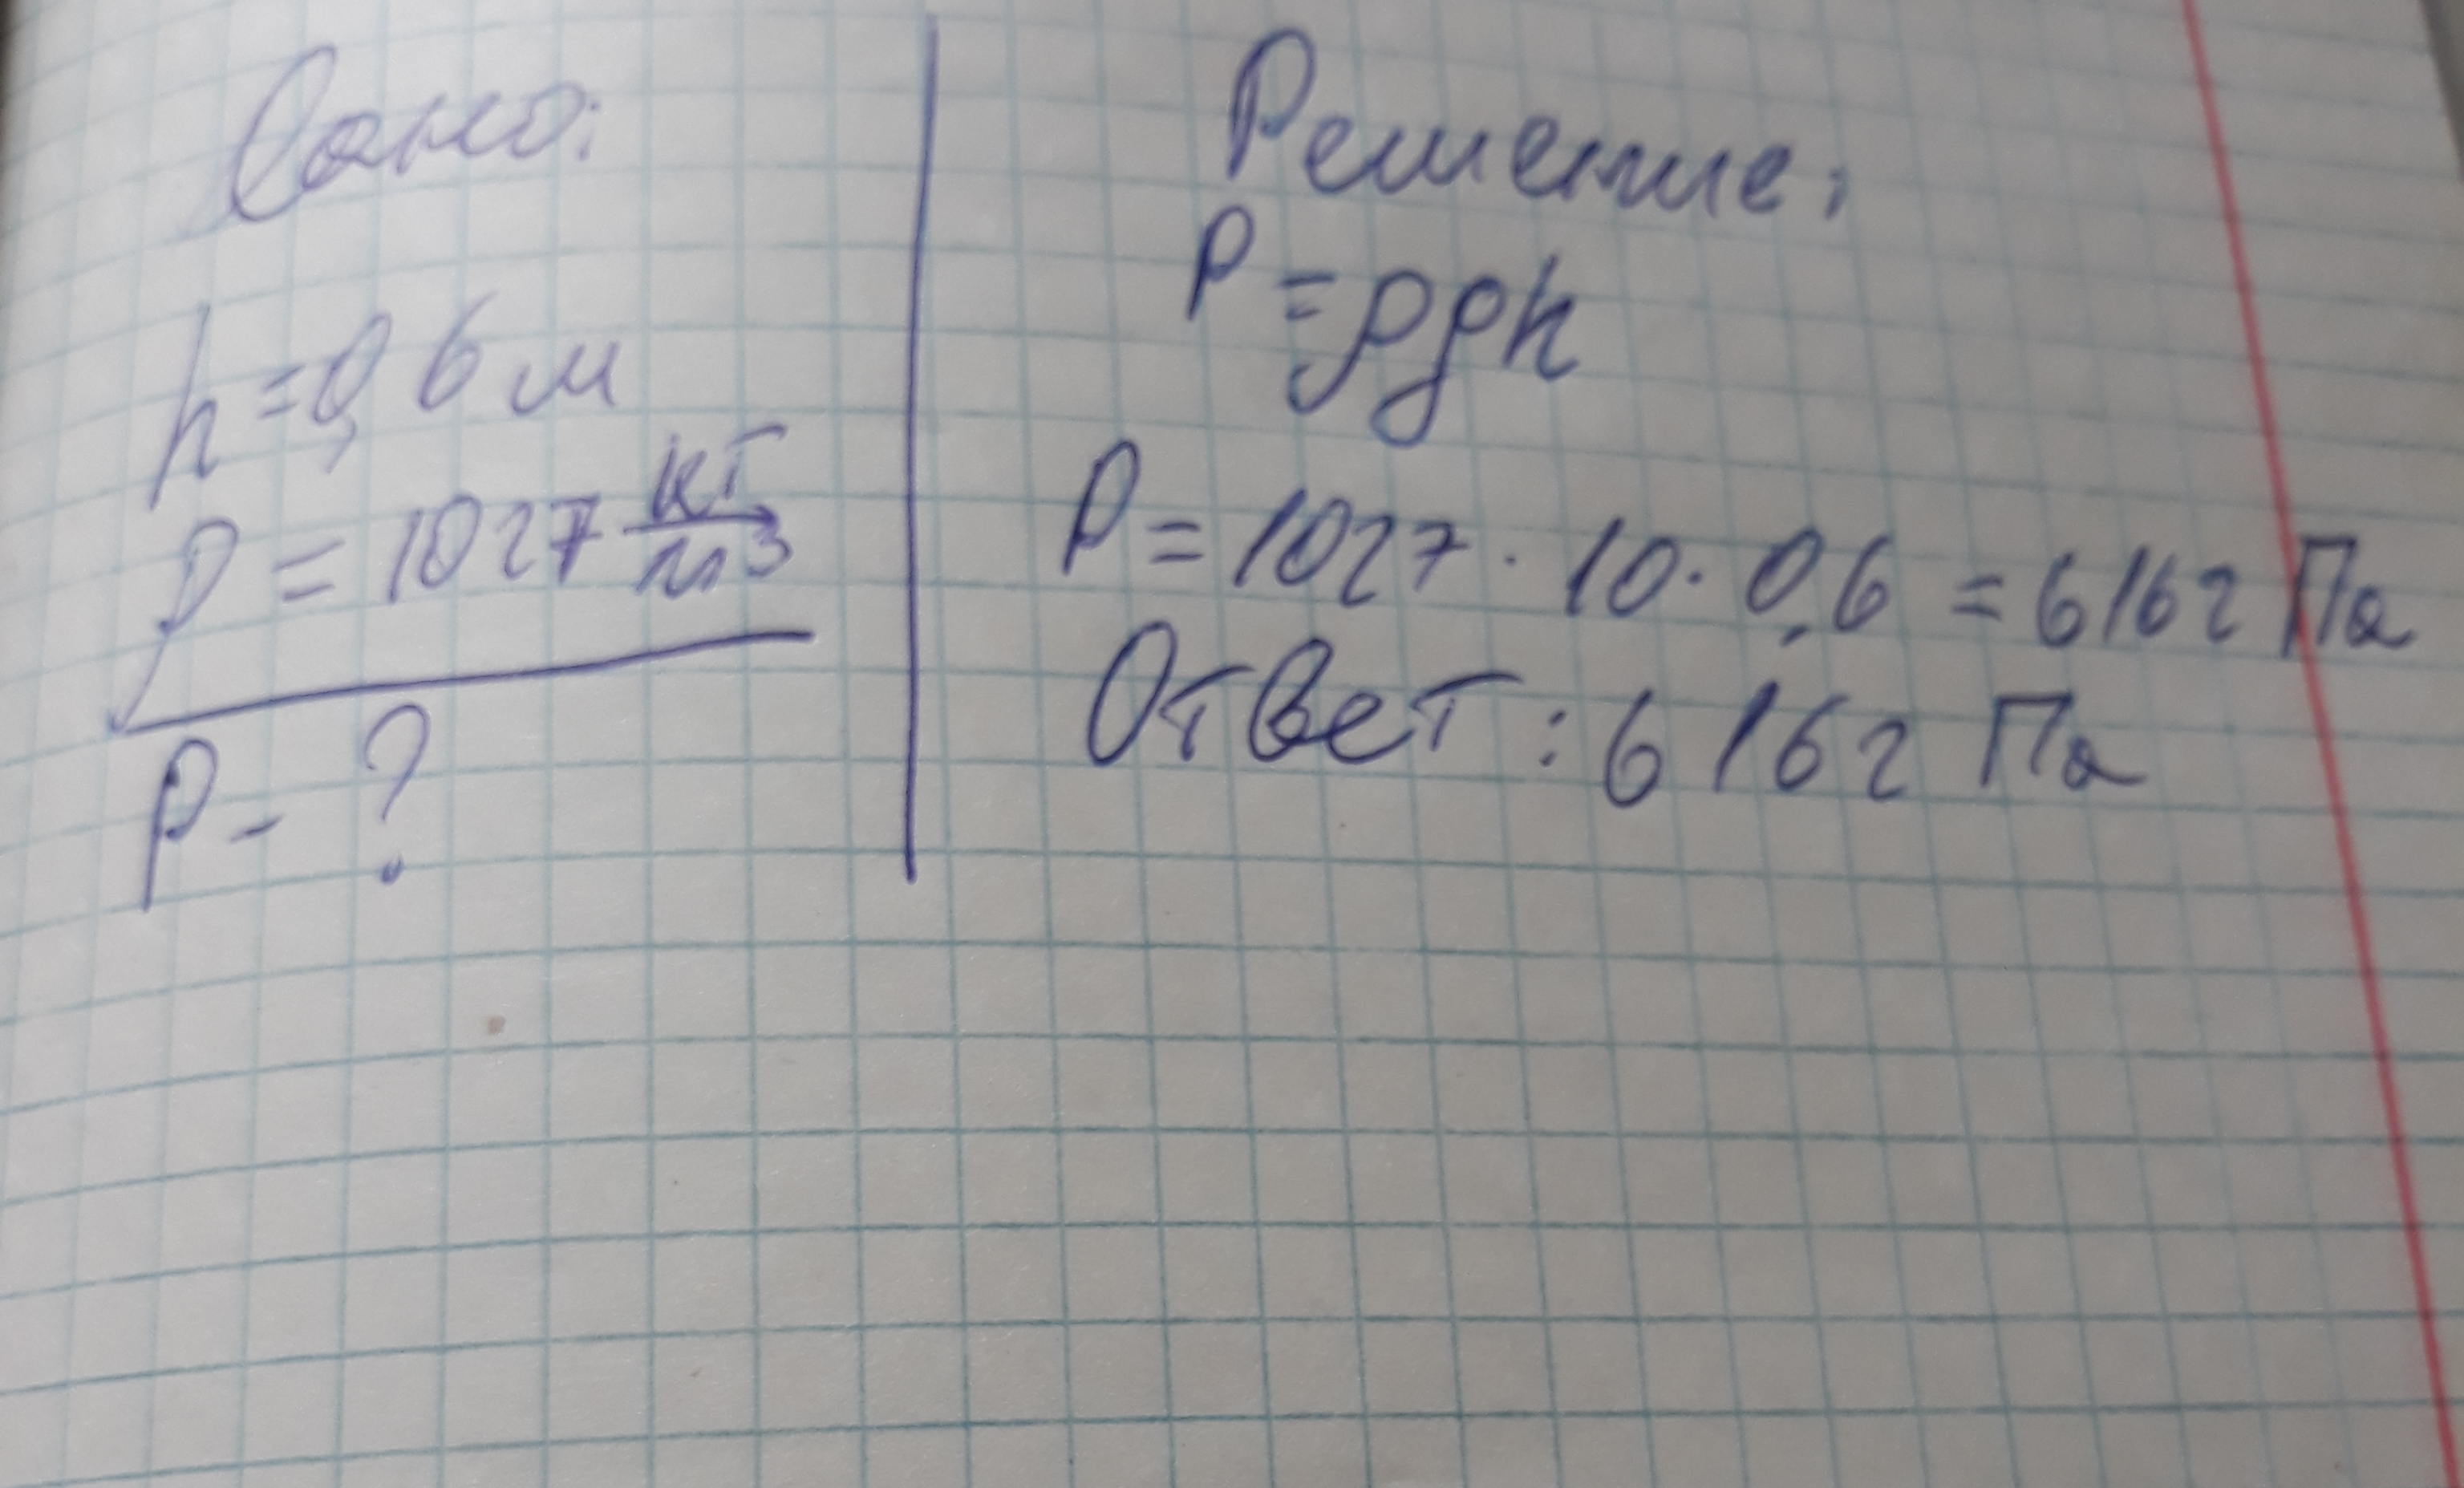 Дано:
h = 0,6 м
ρ = 1027 кг/м3
P - ?
Решение:
P = ρgh
P = 1027 · 10 · 0,6 = 6162 Па
Ответ: 6162 Па